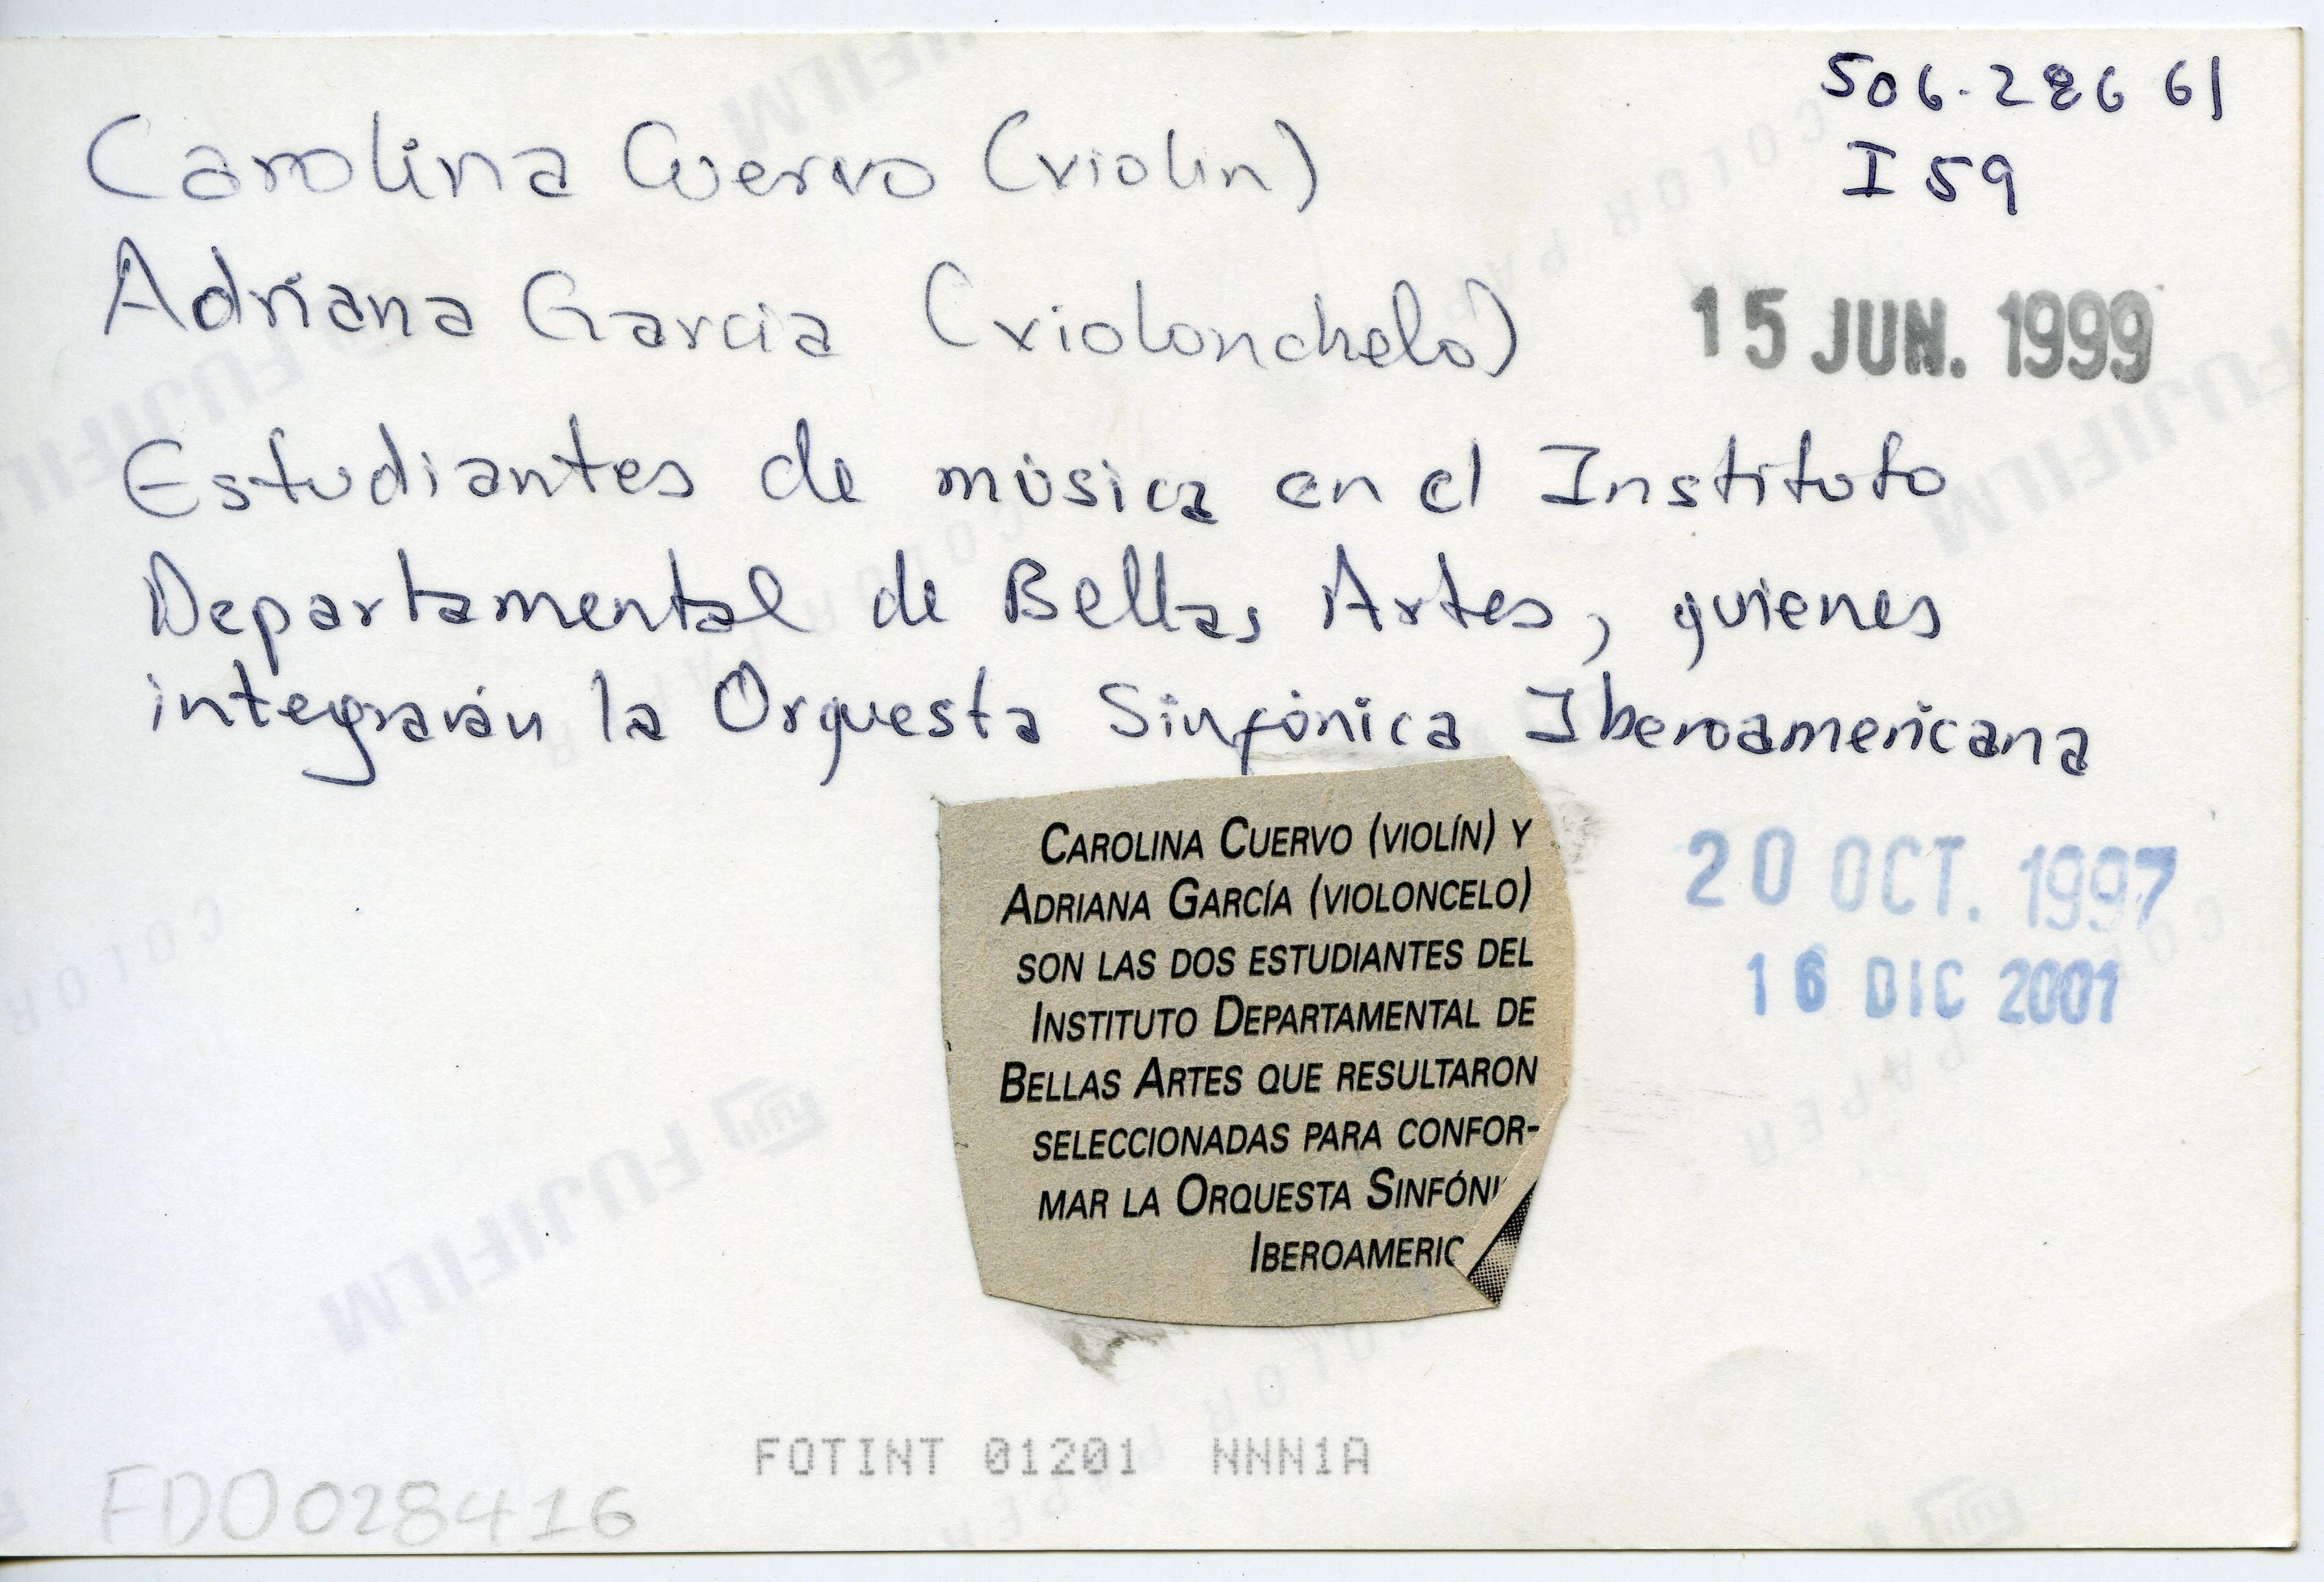 506-286 61
I 59
Carolina Cuervo (violin)
Adriana Garcia (violonchelo)
15 JUN. 1999
Estudiantes de música en el Instituto
Departamental de Bellas Artes, quienes
integrarán la Orquesta Sinfónica Iberoamericana
CAROLINA CUERVO (VIOLÍN) Y
ADRIANA GARCÍA (VIOLONCELO)
SON LAS DOS ESTUDIANTES DEL
INSTITUTO DEPARTAMENTAL DE
BELLAS ARTES QUE RESULTARON
SELECCIONADAS PARA CONFOR-
MAR LA ORQUESTA SINFÓNI
IBEROAMERIC
20 OCT. 1997
16 DIC 2001
FUJIFILM
COLOR PAPER
FOTINT 01201 NNN1A
FD0028416